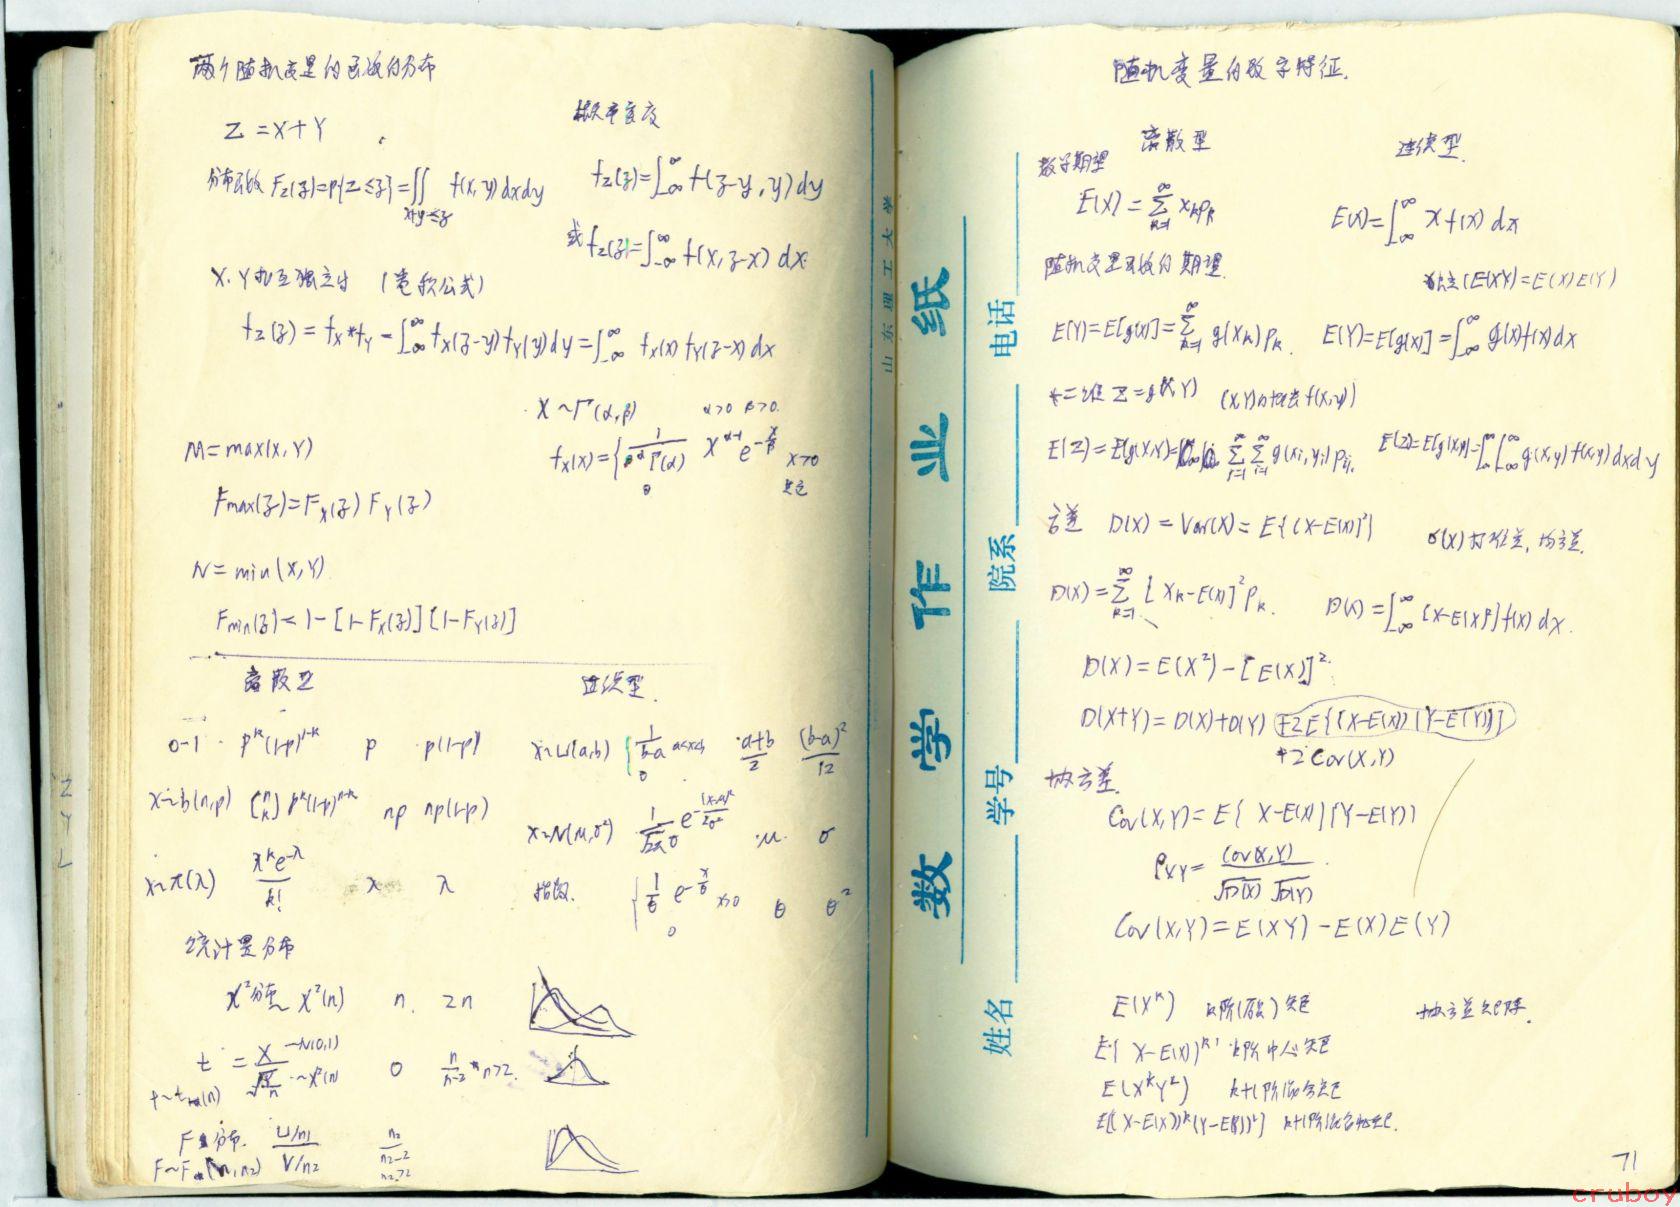 两个随机变量的函数的分布
Z = X + Y
概率密度
分布函数 F_Z(z)=P{Z≤z}=∬_{x+y≤z} f(x,y)dxdy
f_Z(z)=∫_{-∞}^{∞} f(z-y,y)dy
或 f_Z(z)=∫_{-∞}^{∞} f(x,z-x)dx
X,Y相互独立时 (卷积公式)
f_Z(z) = f_X*f_Y = ∫_{-∞}^{∞} f_X(z-y)f_Y(y)dy = ∫_{-∞}^{∞} f_X(x)f_Y(z-x)dx
X~Γ(α,β) α>0 β>0.
f_X(x)={ 1/(β^α Γ(α)) x^{α-1} e^{-x/β} x>0
0 其它
M = max(X,Y)
Fmax(z)=F_X(z) F_Y(z)
N = min(X,Y)
Fmin(z)= 1-[1-F_X(z)][1-F_Y(z)]
离散型 连续型
0-1 p^k(1-p)^{1-k} p p(1-p)
X~U(a,b) { 1/(b-a) a<x<b 0 (a+b)/2 (b-a)²/12
X~b(n,p) (n k) p^k(1-p)^{n-k} np np(1-p)
X~N(μ,σ²) 1/(√2π σ) e^{-(x-μ)²/2σ²} μ σ
X~π(λ) λ^k e^{-λ}/k! λ λ
指数. { 1/θ e^{-x/θ} x>0 0 θ θ²
统计量分布
χ²分布~χ²(n) n. 2n
t = X/√(Y/n) ~N(0,1) ~χ²(n) 0 n/(n-2) n>2.
F 分布. (U/n₁)/(V/n₂) n₂/(n₂-2) n₂>2
随机变量的数字特征.
离散型 连续型.
数学期望
E(X) = Σ_{k=1}^{∞} x_k p_k
E(X)=∫_{-∞}^{∞} x f(x) dx
随机变量函数的期望.
独立(E(XY)=E(X)E(Y)
E(Y)=E[g(X)]=Σ_{k=1}^{∞} g(x_k) p_k.
E(Y)=E[g(X)]=∫_{-∞}^{∞} g(x)f(x)dx
*二维 Z=g(X,Y) (X,Y)的概密f(x,y)
E(Z)=E[g(X,Y)]= Σ_{j=1}^{∞} Σ_{i=1}^{∞} g(x_i,y_j) p_{ij}.
E(Z)=E[g(X,Y)]=∫_{-∞}^{∞}∫_{-∞}^{∞} g(x,y)f(x,y)dxdy
方差 D(X) = Var(X) = E{[X-E(X)]²}
σ(X) 标准差, 均方差.
D(X)=Σ_{k=1}^{∞} [x_k-E(X)]² p_k.
D(X)=∫_{-∞}^{∞} [x-E(X)]² f(x) dx.
D(X) = E(X²)-[E(X)]².
D(X+Y)=D(X)+D(Y) +2E{[X-E(X)][Y-E(Y)]}
+2Cov(X,Y)
协方差.
Cov(X,Y)= E{[X-E(X)][Y-E(Y)]
ρ_XY = Cov(X,Y)/(√D(X) √D(Y))
Cov(X,Y)=E(XY)-E(X)E(Y)
E(X^k) k阶(原点)矩
协方差矩阵.
E{[X-E(X)]^k} k阶中心矩
E(X^kY^l) k+l阶混合矩
E{[X-E(X)]^k[Y-E(Y)]^l} k+l阶混合中心矩.
71
山东理工大学
数学作业纸
姓名 学号 院系 电话
ZYL
cruboy